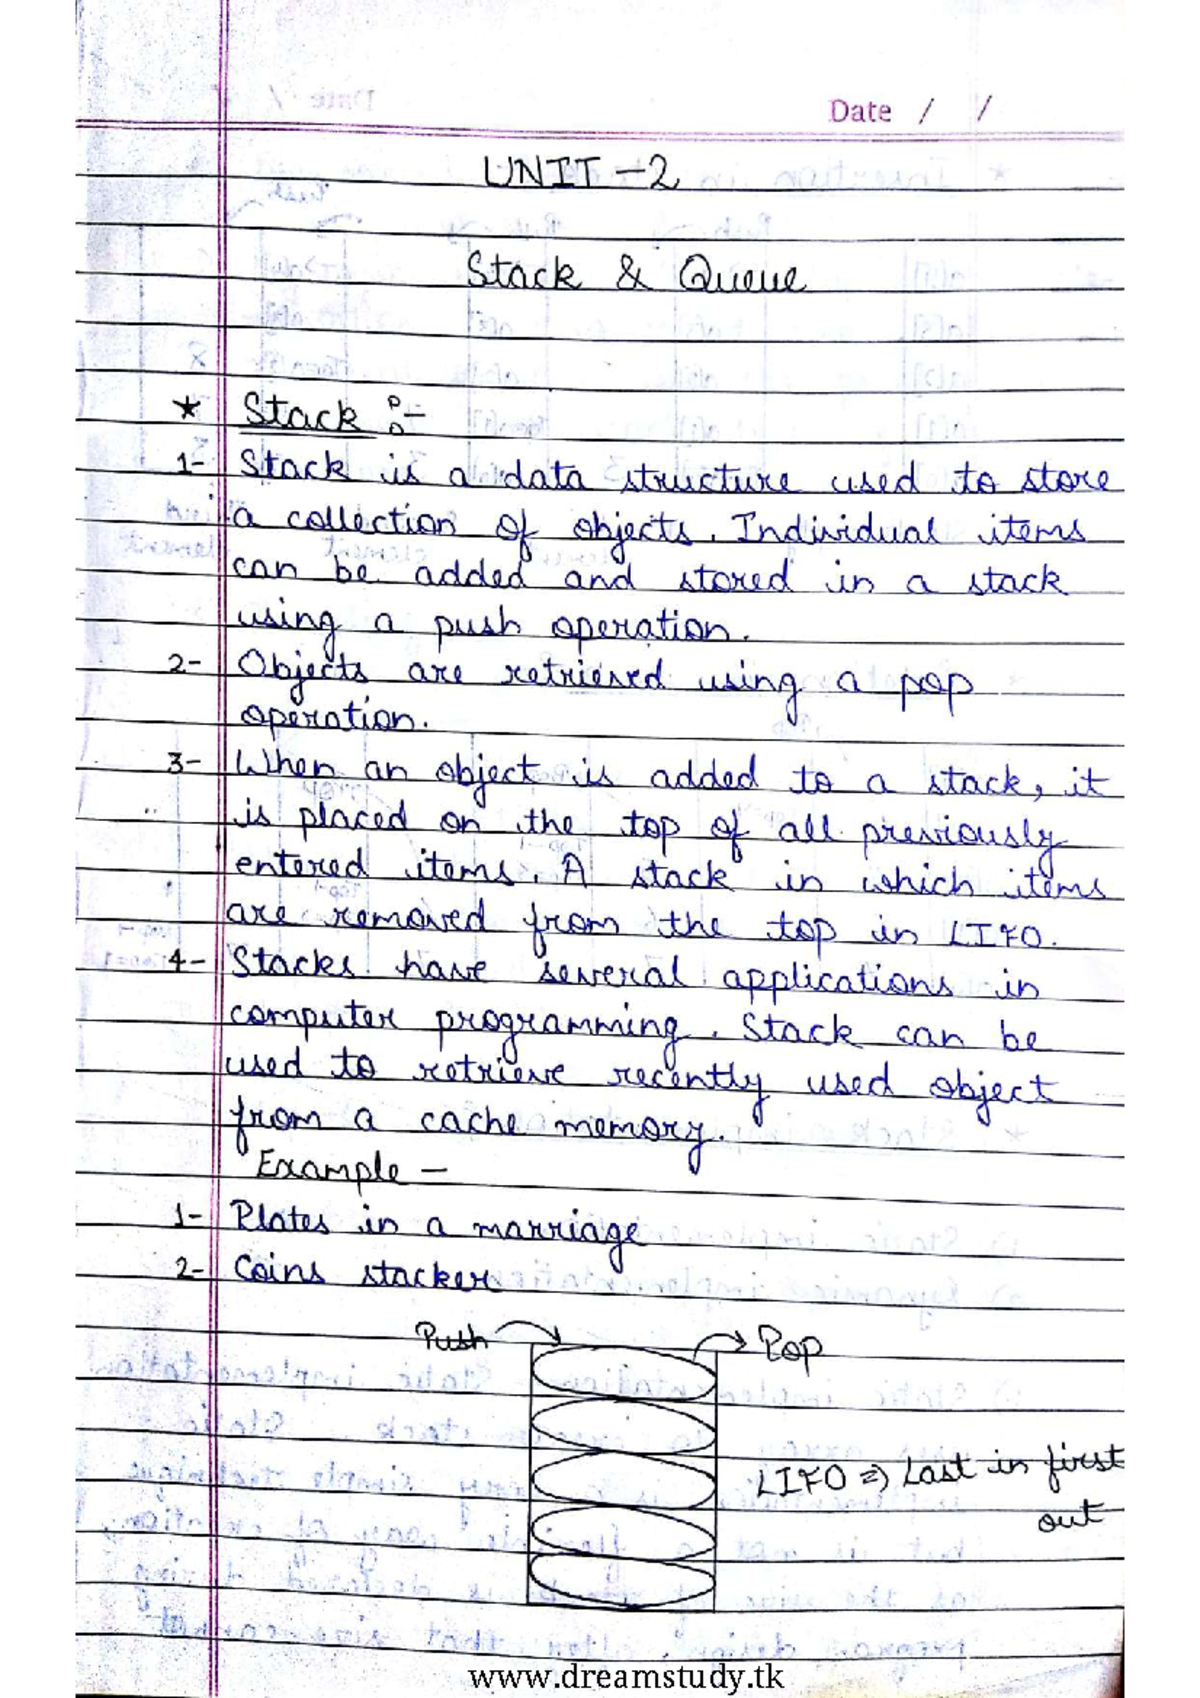 Date / /
UNIT - 2
Stack & Queue
* Stack :-
1- Stack is a data structure used to store
a collection of objects. Individual items
can be added and stored in a stack
using a push operation.
2- Objects are retrieved using a pop
operation.
3- When an object is added to a stack, it
is placed on the top of all previously
entered items. A stack in which items
are removed from the top in LIFO.
4- Stacks have several applications in
computer programming. Stack can be
used to retrieve recently used object
from a cache memory.
Example -
1- Plates in a marriage
2- Coins stacker
Push Pop
LIFO => Last in first
out
www.dreamstudy.tk